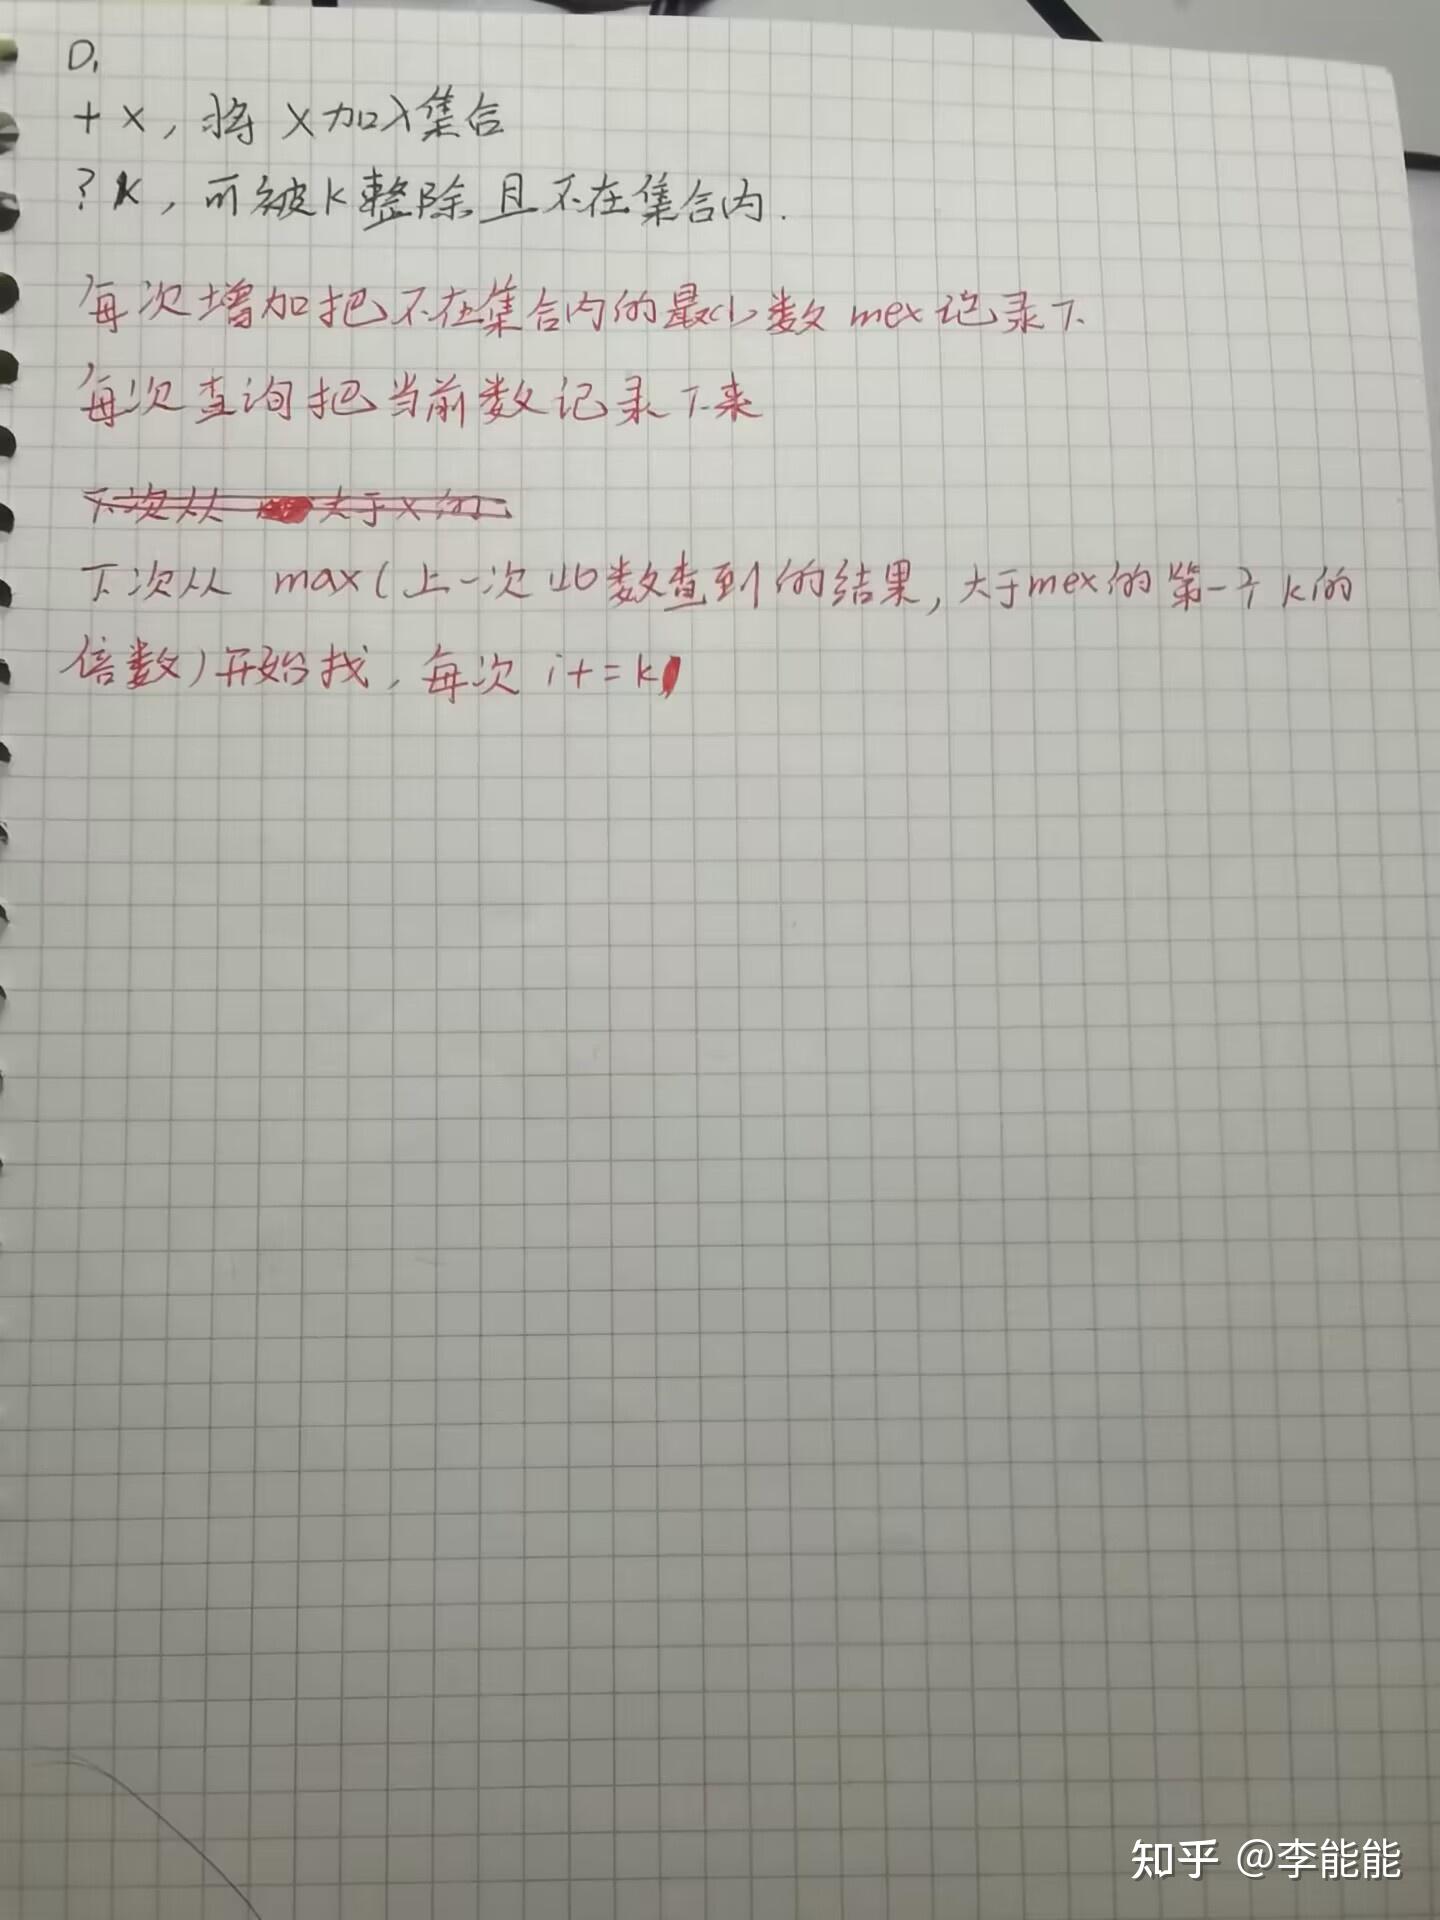 D1
+ x, 将 x加入集合
? k, 可被k整除且不在集合内.
每次增加把不在集合内的最小数 mex 记录下
每次查询把当前数记录下来
下次从 大于x的
下次从 max(上一次此数查到的结果, 大于mex的第一个k的
倍数)开始找, 每次 i+=k
知乎 @李能能